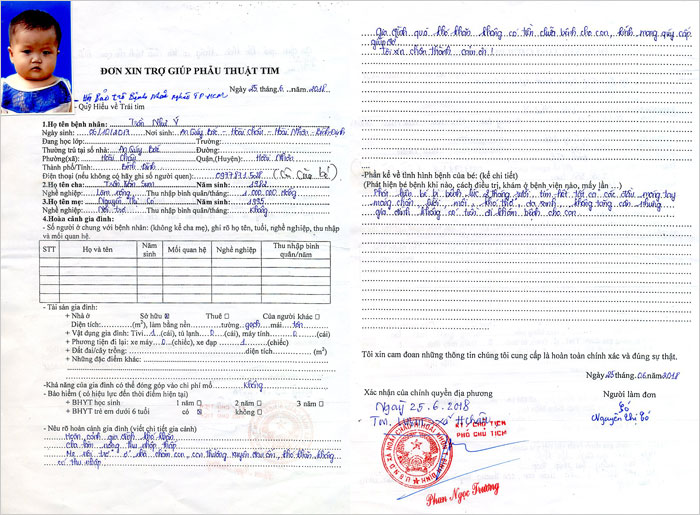 ĐƠN XIN TRỢ GIÚP PHẪU THUẬT TIM
Ngày 25 tháng 6 năm 2018
- Hội Bảo Trợ Bệnh Nhân Nghèo TP HCM
- Quỹ Hiểu về Trái tim
1.Họ tên bệnh nhân: Trần Như Ý
Ngày sinh: 06/10/2017 Nơi sinh: An Quý Bắc - Hoài Châu - Hoài Nhơn - Bình Định
Đang học lớp: Trường:
Thường trú tại số nhà: An Quý Bắc Đường:
Phường(xã): Hoài Châu Quận,(Huyện): Hoài Nhơn
Thành phố/Tỉnh: Bình Định
Điện thoại (nếu không có hãy ghi số người quen):
2.Họ tên cha: Trần Văn Sum Năm sinh:
Nghề nghiệp: Làm nông Thu nhập bình quân/tháng: 1.000.000 đồng
3.Họ tên mẹ: Nguyễn Thị Có Năm sinh: 1995
Nghề nghiệp: Nội trợ Thu nhập bình quân/tháng: không
4.Hoàn cảnh gia đình:
- Số người ở chung với bệnh nhân: (không kể cha mẹ), ghi rõ họ tên, tuổi, nghề nghiệp, thu nhập
và mối quan hệ.
STT Họ và tên Năm sinh Mối quan hệ Nghề nghiệp Thu nhập bình quân/năm
- Tài sản gia đình:
+ Nhà ở Sở hữu Thuê Của người khác
Diện tích: (m²), làm bằng nền tường gạch mái tôn
+ Vật dụng gia đình: Tivi 1 (cái), tủ lạnh 0 (cái), máy tính 0 (cái)
+ Phương tiện đi lại: xe máy 0 (chiếc), xe đạp 1 (chiếc)
+ Đất đai/cây trồng: diện tích (m²)
+ Những đặc điểm khác:
-Khả năng của gia đình có thể đóng góp vào chi phí mổ không
- Bảo hiểm ( có hiệu lực đến thời điểm hiện tại)
+ BHYT học sinh 1 năm 2 năm 3 năm
+ BHYT trẻ em dưới 6 tuổi có không
- Nêu rõ hoàn cảnh gia đình (viết chi tiết gia cảnh)
Hoàn cảnh gia đình khó khăn
Cha làm nông thu nhập thấp
Mẹ nội trợ ở nhà chăm con, con thường xuyên đau ốm, khó khăn không
có thu nhập
gia đình quá khó khăn không có tiền chữa bệnh cho con, kính mong quý cấp
giúp đỡ
Tôi xin chân thành cảm ơn!
-Phần kể về tình hình bệnh của bé: (kể chi tiết)
(Phát hiện bé bị bệnh khi nào, cách điều trị, khám ở bệnh viện nào, mấy lần ...)
Phát hiện bé bị bệnh lúc 2 tháng tuổi, tím hết tất cả các đầu móng tay
móng chân, lưỡi, môi, khó thở, da xanh, không tăng cân nhưng
gia đình không có tiền đi khám bệnh cho con
Tôi xin cam đoan những thông tin chúng tôi cung cấp là hoàn toàn chính xác và đúng sự thật.
Ngày 25 tháng 06 năm 2018
Xác nhận của chính quyền địa phương Người làm đơn
Ngày 25.6.2018 Có
Nguyễn Thị Có
KT. CHỦ TỊCH
PHÓ CHỦ TỊCH
Phan Ngọc Trường